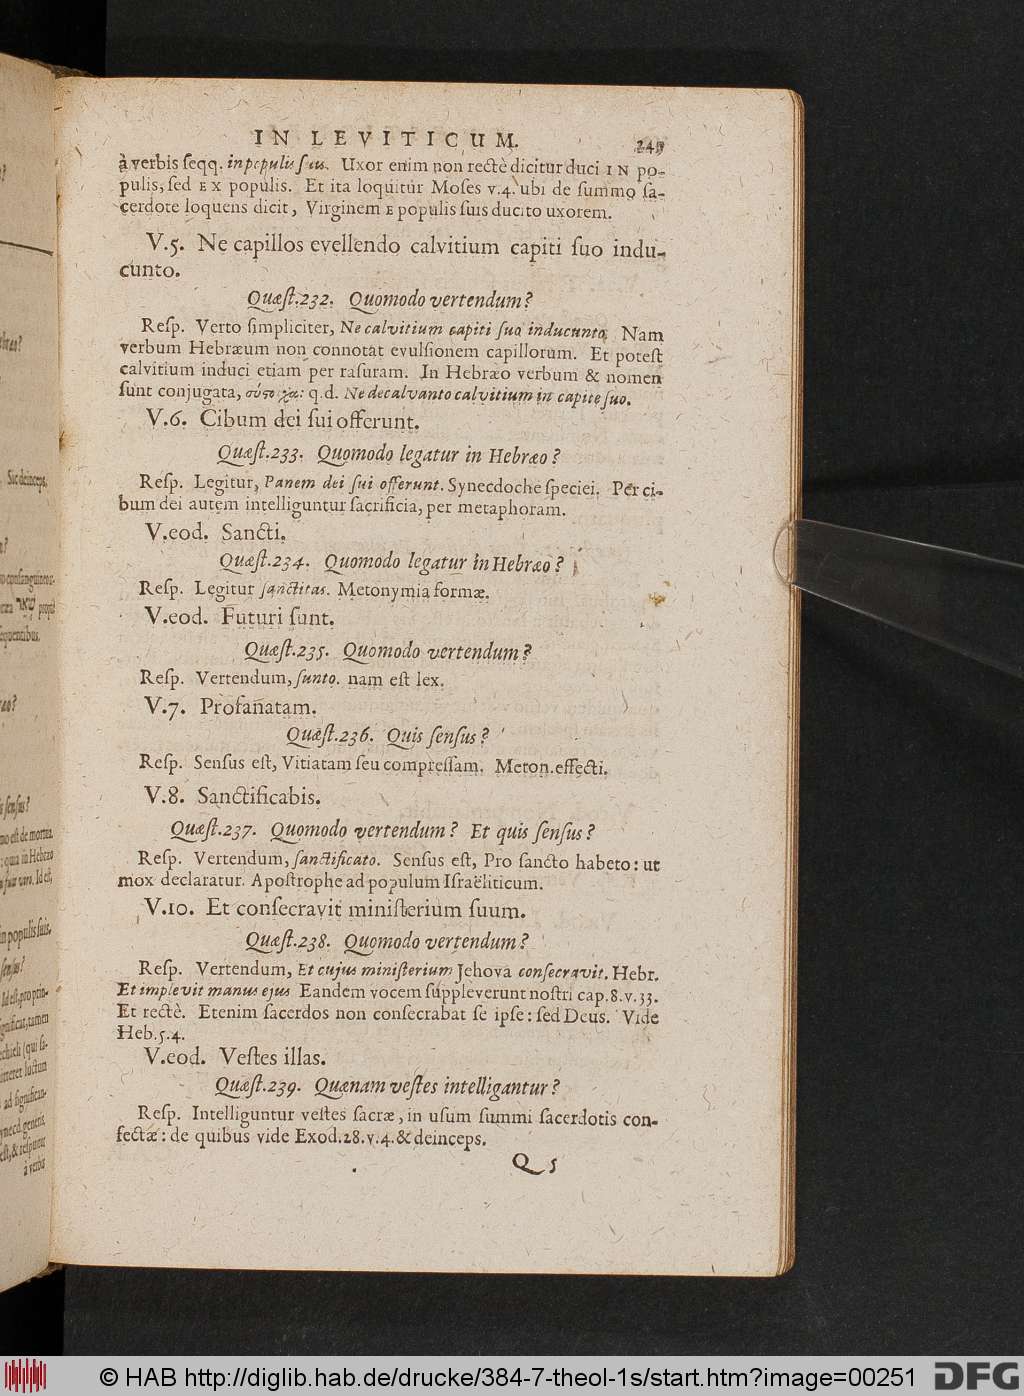 IN LEVITICUM. 249
à verbis seqq. in populis suis. Uxor enim non rectè dicitur duci IN po-
pulis, sed EX populis. Et ita loquitur Moses v.4. ubi de summo sa-
cerdote loquens dicit, Virginem E populis suis ducito uxorem.
V.5. Ne capillos evellendo calvitium capiti suo indu-
cunto.
Quæst.232. Quomodo vertendum?
Resp. Verto simpliciter, Ne calvitium capiti suo inducunto. Nam
verbum Hebræum non connotat evulsionem capillorum. Et potest
calvitium induci etiam per rasuram. In Hebræo verbum & nomen
sunt conjugata, q.d. Ne decalvanto calvitium in capite suo.
V.6. Cibum dei sui offerunt.
Quæst.233. Quomodo legatur in Hebræo?
Resp. Legitur, Panem dei sui offerunt. Synecdoche speciei. Per ci-
bum dei autem intelliguntur sacrificia, per metaphoram.
V.eod. Sancti.
Quæst.234. Quomodo legatur in Hebræo?
Resp. Legitur sanctitas. Metonymia formæ.
V.eod. Futuri sunt.
Quæst.235. Quomodo vertendum?
Resp. Vertendum, sunto. nam est lex.
V.7. Profanatam.
Quæst.236. Quis sensus?
Resp. Sensus est, Vitiatam seu compressam. Meton.effecti.
V.8. Sanctificabis.
Quæst.237. Quomodo vertendum? Et quis sensus?
Resp. Vertendum, sanctificato. Sensus est, Pro sancto habeto: ut
mox declaratur. Apostrophe ad populum Israëliticum.
V.10. Et consecravit ministerium suum.
Quæst.238. Quomodo vertendum?
Resp. Vertendum, Et cujus ministerium Jehova consecravit. Hebr.
Et implevit manus ejus Eandem vocem suppleverunt nostri cap.8.v.33.
Et rectè. Etenim sacerdos non consecrabat se ipse: sed Deus. Vide
Heb.5.4.
V.eod. Vestes illas.
Quæst.239. Quænam vestes intelligantur?
Resp. Intelliguntur vestes sacræ, in usum summi sacerdotis con-
fectæ: de quibus vide Exod.28.v.4.& deinceps.
Q 5
© HAB http://diglib.hab.de/drucke/384-7-theol-1s/start.htm?image=00251
DFG